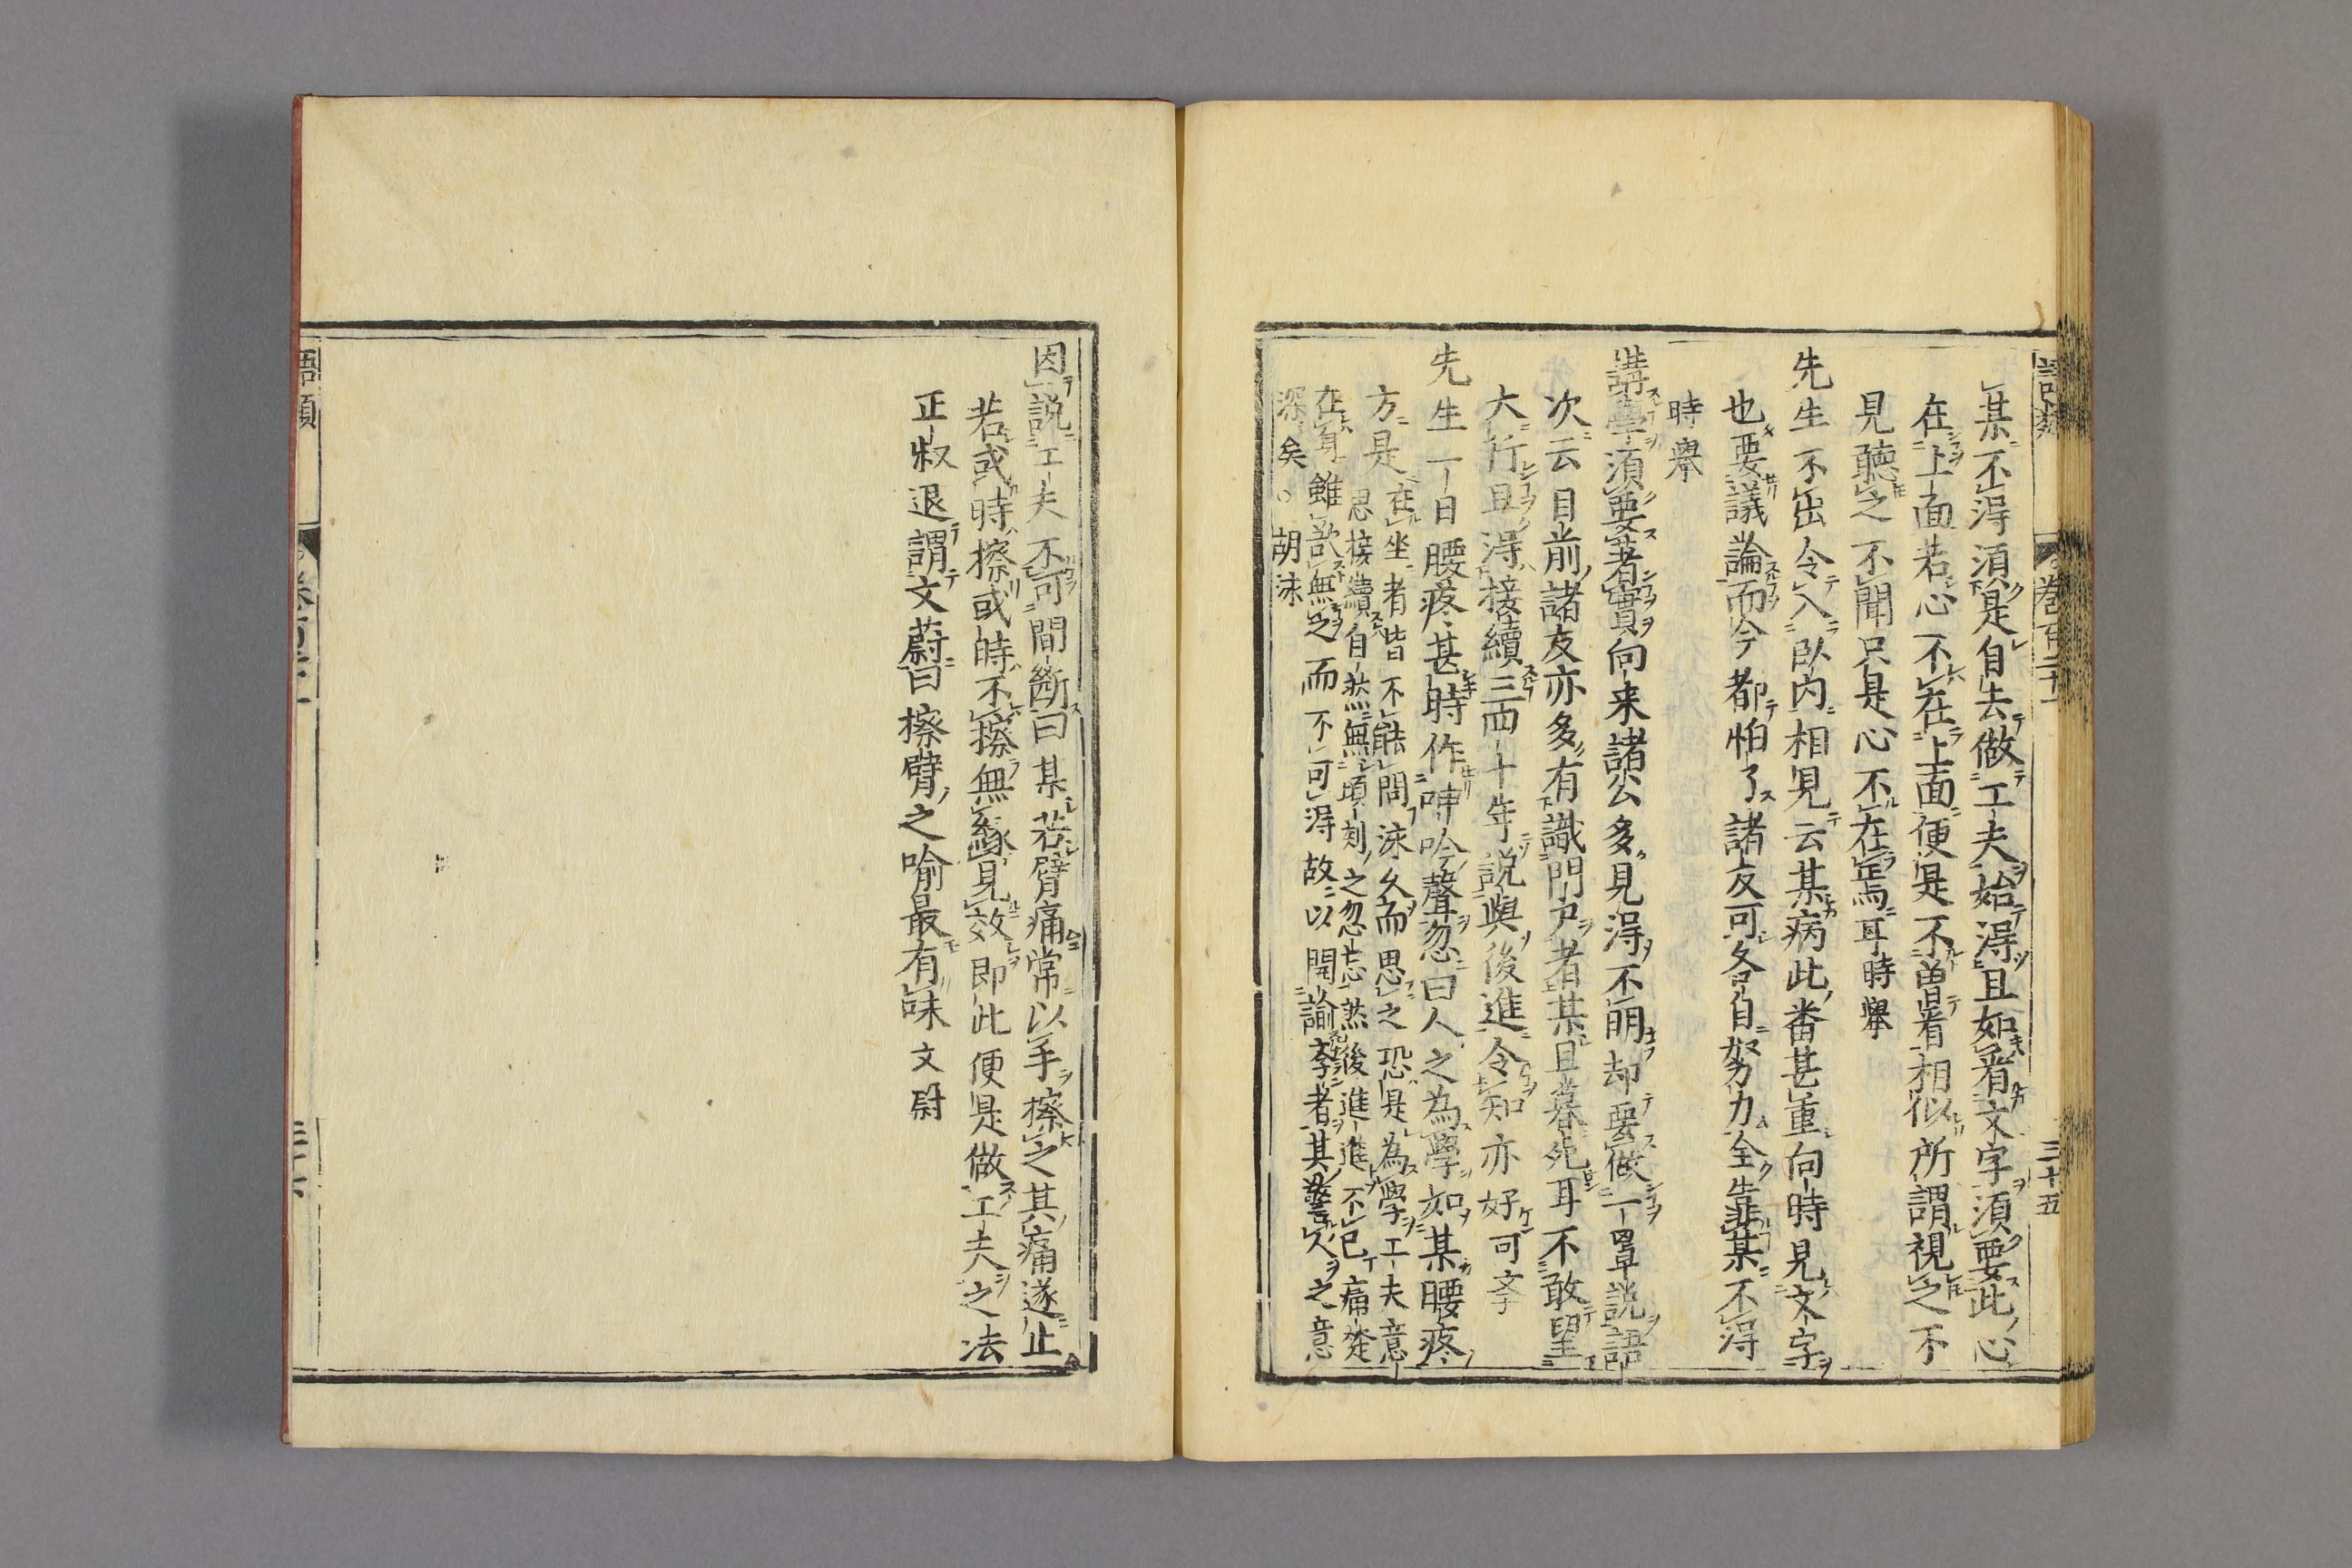 語類 卷百二十一 三十五
某不得須是自去做工夫始得且如看文字須要此心
在上面若心不在上面便是不曾看相似所謂視之不
見聽之不聞只是心不在焉耳時舉
先生不出令入臥内相見云某病此番甚重向時見文字
也要議論而今都怕了諸友可各自努力全靠某不得
時舉
講學須要著實向来諸公多見得不明却要做一罩説語
次云目前諸友亦多有識門戸者某且暮死耳不敢望
大行且得接續三四十年説與後進令知亦好可斈
先生一日腰疼甚時作呻吟聲忽曰人之為學如某腰疼
方是在坐者皆不能問洙久而思之恐是為學工夫意
思接續自然無頃刻之忽忘然後進進不已痛楚
在身雖欲無之而不可得故以開諭斈者其警人之意
深矣○胡洙
因説工夫不可間斷曰某若臂痛常以手擦之其痛遂止
若或時擦或時不擦無緣見效即此便是做工夫之法
正叔退謂文蔚曰擦臂之喻最有味文蔚
語類